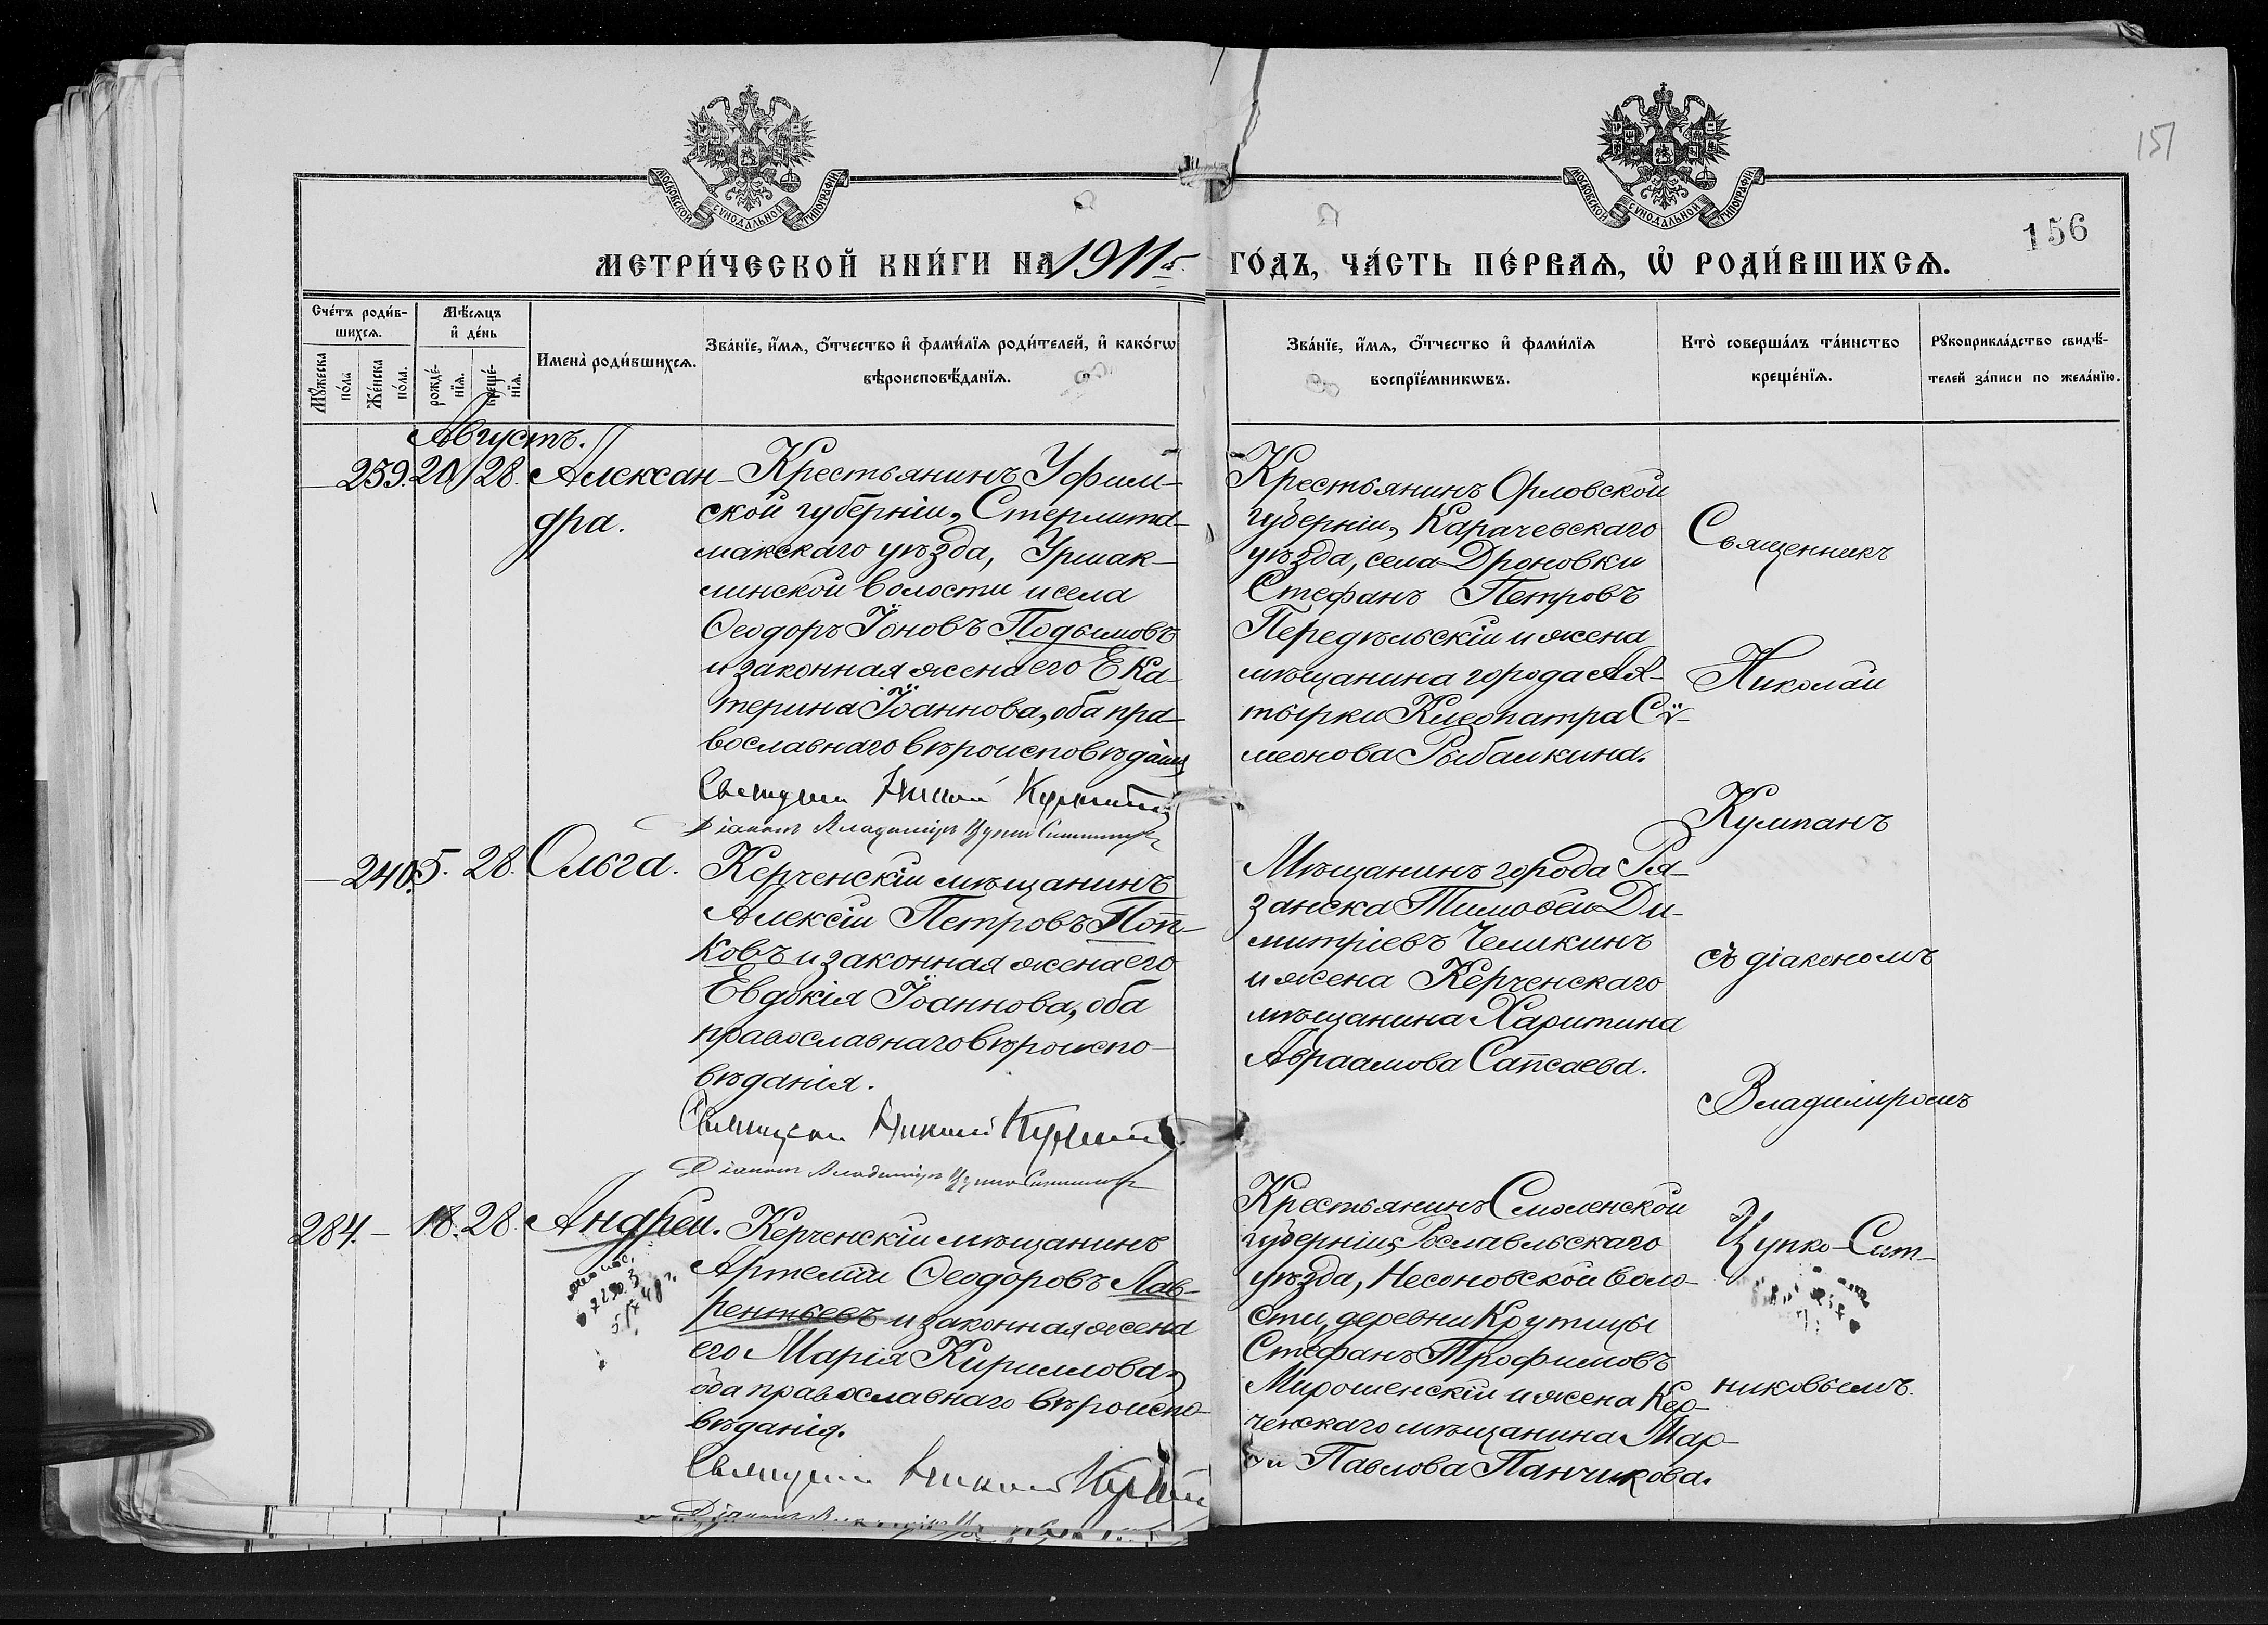 МОСКОВСКОЙ СѴНОДАЛЬНОЙ ТИПОГРАФІИ
МОСКОВСКОЙ СѴНОДАЛЬНОЙ ТИПОГРАФІИ
151
156
МЕТРИ́ЧЕСКОЙ КНИ́ГИ НА 1911 й. ГО́ДЪ, ЧА́СТЬ ПЕ́РВАѦ, Ѡ҆ РОДИ́ВШИХСѦ.
Сче́тъ роди́в-
шихсѧ.
Мꙋ́жеска
по́ла
Же́нска
по́ла.
Мѣ́сѧцъ
и҆ де́нь
рожде́-
нїѧ.
креще́-
нїѧ.
Имена̀ роди́вшихсѧ.
Зва́нїе, и҆́мѧ, ѻ҆́тчество и҆ фами́лїѧ роди́телей, и҆ како́гѡ
вѣроисповѣ́данїѧ.
Зва́нїе, и҆́мѧ, ѻ҆́тчество и҆ фами́лїѧ
воспрїе́мникѡвъ.
Кто̀ соверша́лъ та́инство
креще́нїѧ.
Рꙋкоприкла́дство свидѣ́-
телей за́писи по жела́нїю.
Августъ.
239. 20 28. Алексан-
дра.
Крестьянинъ Уфим-
ской губерніи, Стерлита-
макскаго уѣзда, Урмак-
линской волости и села
Ѳеодоръ Іоновъ Подымовъ
и законная жена его Ека-
терина Іоаннова, оба пра-
вославнаго вѣроисповѣданія
Священникъ Николай Кумпанъ
Діаконъ Владимиръ Цупко-Ситниковъ
Крестьянинъ Орловской
губерніи, Карачевскаго
уѣзда, села Дроновки
Стефанъ Петровъ
Передѣльскій и жена
мѣщанина города Ах-
тырки Клеопатра Сѵ-
меонова Рыбалкина.
Священникъ
Николай
Кумпанъ
240. 5. 28. Ольга.
Керченскій мѣщанинъ
Алексій Петровъ Поп-
ковъ и законная жена его
Евдокія Іоаннова, оба
православнаго вѣроиспо-
вѣданія.
Священникъ Николай Кумпанъ
Діаконъ Владимиръ Цупко-Ситниковъ
Мѣщанинъ города Ря-
занска Тимоѳей Ди-
митріевъ Челикинъ
и жена Керченскаго
мѣщанина Харитина
Авраамова Сапсаева.
съ діакономъ
Владиміромъ
284. 18. 28. Андрей.
Керченскій мѣщанинъ
Артемій Ѳеодоровъ Лав-
рентьевъ и законная жена
его Марія Кириллова,
оба православнаго вѣроиспо-
вѣданія.
Священникъ Николай Кумпанъ
Крестьянинъ Смоленской
губерніи, Рославльскаго
уѣзда, Несоновской воло-
сти, деревни Крутицы
Стефанъ Трофимовъ
Мирошенскій и жена Кер-
ченскаго мѣщанина Мар-
ѳа Павлова Панчикова.
Цупко-Сит-
никовымъ.